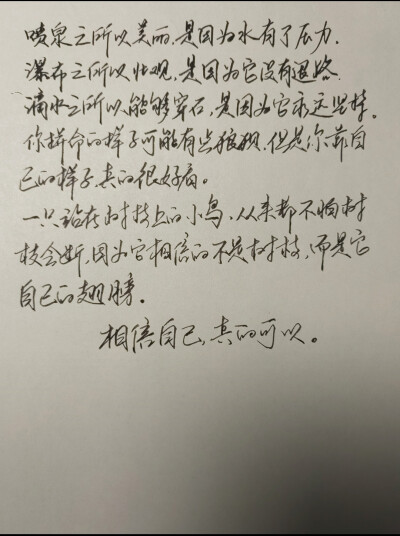 喷泉之所以美丽，是因为水有了压力．
瀑布之所以壮观，是因为它没有退路．
滴水之所以能够穿石，是因为它永远坚持。
你拼命的样子可能有些狼狈，但是你靠自
己的样子，真的很好看。
一只站在树枝上的小鸟，从来都不怕树
枝会断，因为它相信的不是树枝，而是它
自己的翅膀．
相信自己，真的可以。